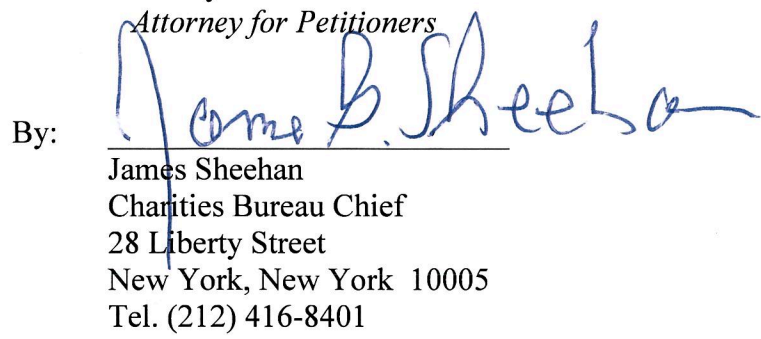 Attorney for Petitioners
James B. Sheehan
By:
James Sheehan
Charities Bureau Chief
28 Liberty Street
New York, New York 10005
Tel. (212) 416-8401